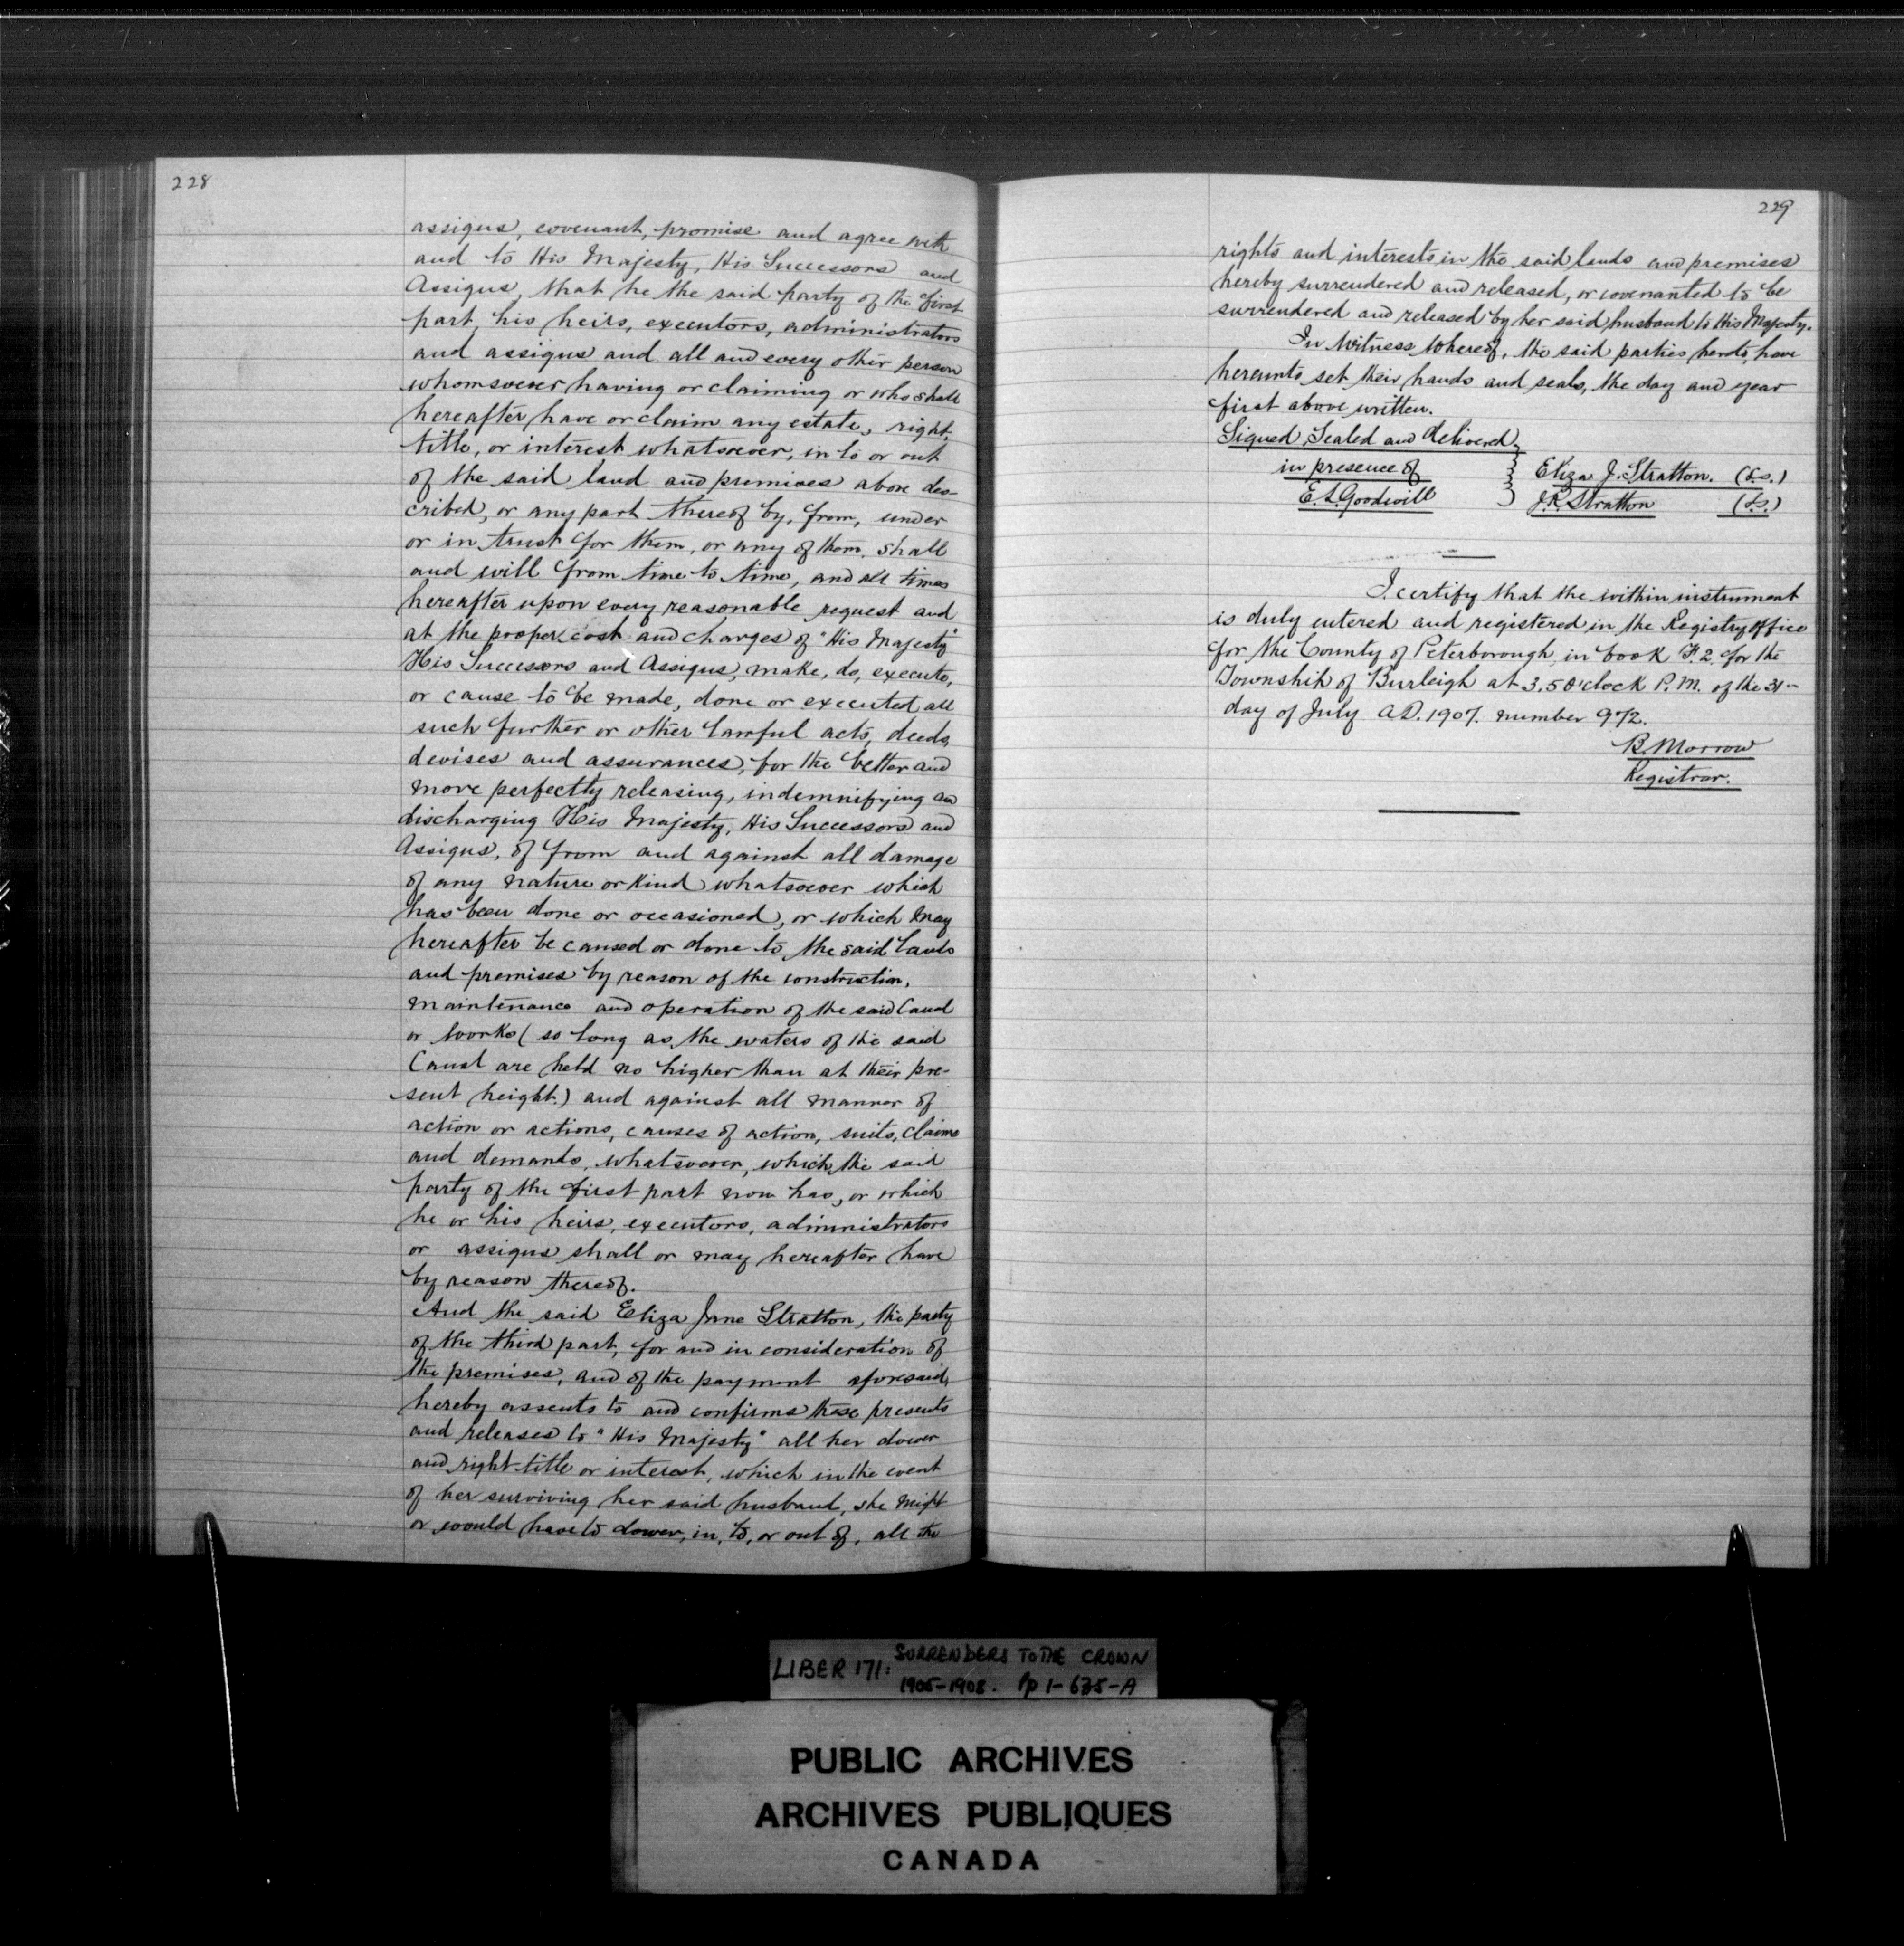 228
assigns, covenant, promise and agree with
and to His Majesty, His Successors and
Assigns, that he the said party of the first
part, his heirs, executors, administrators
and assigns and all and every other person
whomsoever having or claiming or who shall
hereafter have or claim any estate, right,
title, or interest whatsoever, in to or out
of the said land and premises above des-
cribed, or any part thereof by, from, under
or in trust for them, or any of them, shall
and will from time to time, and all times
hereafter upon every reasonable request and
at the proper cost and charges of "His Majesty"
His Successors and Assigns, make, do, execute,
or cause to be made, done or executed all
such further or other lawful acts, deeds,
devises and assurances, for the better and
more perfectly releasing, indemnifying and
discharging His Majesty, His Successors and
Assigns, of from and against all damage
of any nature or kind whatsoever which
has been done or occasioned, or which may
hereafter be caused or done to the said lands
and premises by reason of the construction,
maintenance and operation of the said Canal
or works (so long as the waters of the said
Canal are held no higher than at their pre-
sent height.) and against all manner of
action or actions, causes of action, suits, claims
and demands, whatsoever, which the said
party of the first part now has, or which
he or his heirs, executors, administrators
or assigns shall or may hereafter have
by reason thereof.
And the said Eliza Jane Stratton, the party
of the third part, for and in consideration of
the premises, and of the payment aforesaid,
hereby assents to and confirms these presents
and releases to "His Majesty" all her dower
and right title or interest, which in the event
of her surviving her said husband, she might
or would have to dower, in, to, or out of, all the
229
rights and interests in the said lands and premises
hereby surrendered and released, or covenanted to be
surrendered and released by her said husband to His Majesty.
In Witness Whereof, the said parties hereto, have
hereunto set their hands and seals, the day and year
first above written.
Signed, Sealed and delivered
in presence of } Eliza J. Stratton. (L.S.)
E.L. Goodwill J.R. Stratton (L.S.)
I certify that the within instrument
is duly entered and registered in the Registry Office
for the County of Peterborough, in book F. 2. for the
Township of Burleigh at 3.50'clock P.M. of the 31-
day of July A.D. 1907. number 972.
B. Morrow
Registrar.
LIBER 171: SURRENDERS TO THE CROWN
1905-1908. Pp 1-635-A
PUBLIC ARCHIVES
ARCHIVES PUBLIQUES
CANADA